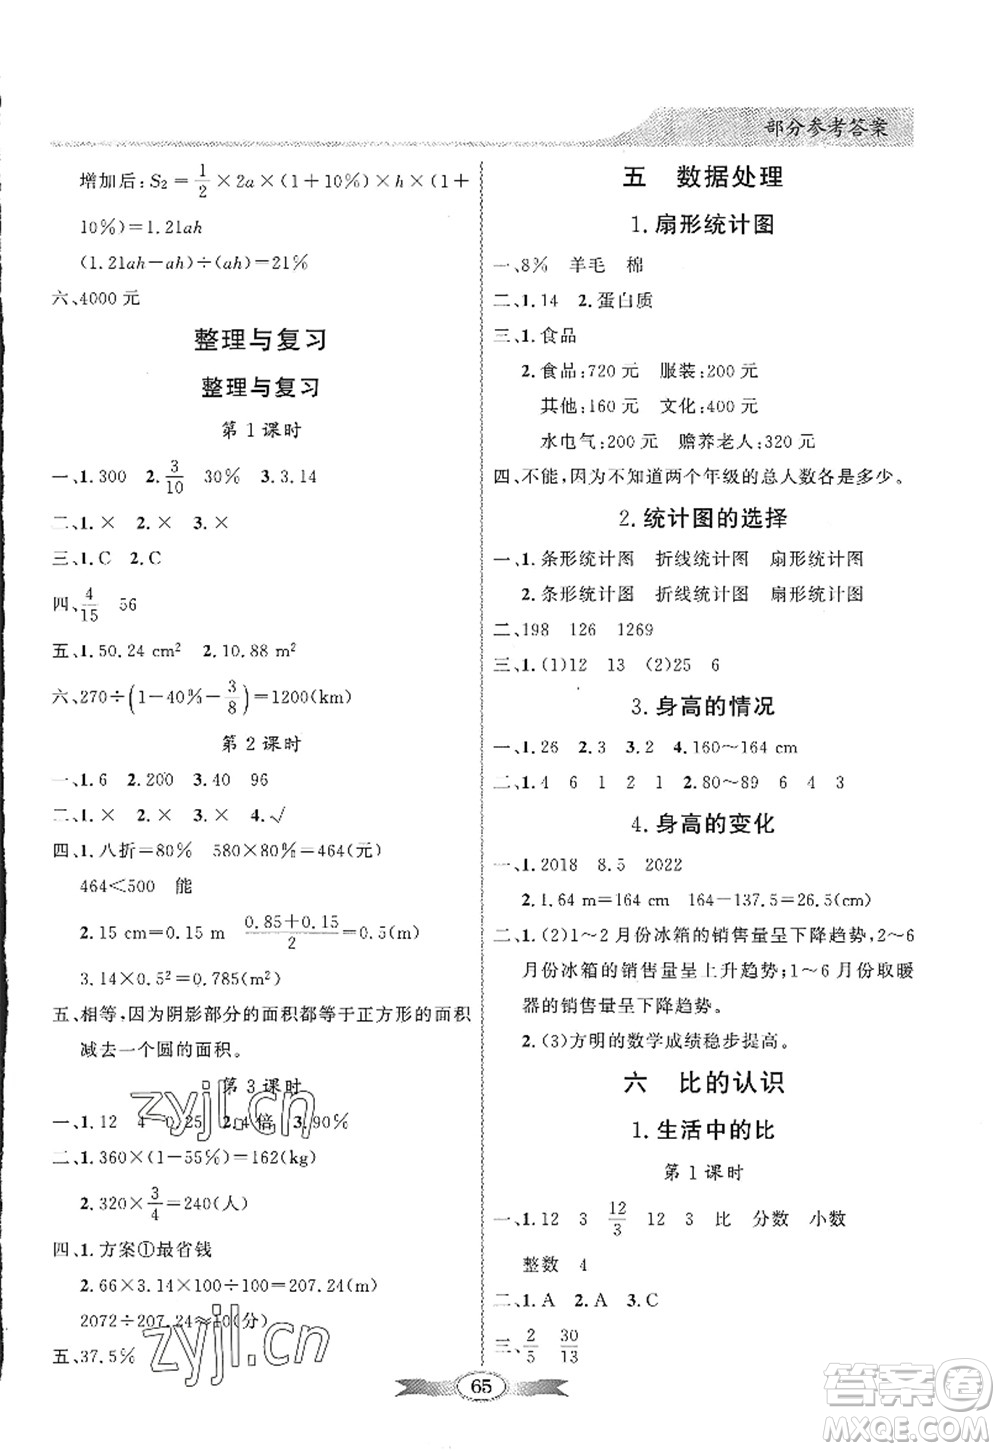 部分参考答案
增加后:S₂=1/2×2a×(1+10%)×h×(1+
10%)=1.21ah
(1.21ah-ah)÷(ah)=21%
六、4000 元
整理与复习
整理与复习
第 1 课时
一、1.300 2.3/10 30% 3.3.14
二、1.× 2.× 3.×
三、1.C 2.C
四、4/15 56
五、1.50.24 cm² 2.10.88 m²
六、270÷(1-40%-3/8)=1200(km)
第 2 课时
一、1.6 2.200 3.40 96
二、1.× 2.× 3.× 4.√
四、1.八折=80% 580×80%=464(元)
464<500 能
2.15 cm=0.15 m (0.85+0.15)/2=0.5(m)
3.14×0.5²=0.785(m²)
五、相等,因为阴影部分的面积都等于正方形的面积
减去一个圆的面积。
第 3 课时
一、1.12 4 0.25 2.4 倍 3.90%
二、1.360×(1-55%)=162(kg)
2.320×3/4=240(人)
四、1.方案①最省钱
2.66×3.14×100÷100=207.24(m)
2072÷207.24≈10(分)
五、37.5%
五 数据处理
1.扇形统计图
一、8% 羊毛 棉
二、1.14 2.蛋白质
三、1.食品
2.食品:720 元 服装:200 元
其他:160 元 文化:400 元
水电气:200 元 赡养老人:320 元
四、不能,因为不知道两个年级的总人数各是多少。
2.统计图的选择
一、1.条形统计图 折线统计图 扇形统计图
2.条形统计图 折线统计图 扇形统计图
二、198 126 1269
三、1.(1)12 13 (2)25 6
3.身高的情况
一、1.26 2.3 3.2 4.160～164 cm
二、1.4 6 1 2 1 2.80～89 6 4 3
4.身高的变化
一、1.2018 8.5 2022
2.1.64 m=164 cm 164-137.5=26.5(cm)
二、1.(2)1～2 月份冰箱的销售量呈下降趋势,2～6
月份冰箱的销售量呈上升趋势;1～6 月份取暖
器的销售量呈下降趋势。
2.(3)方明的数学成绩稳步提高。
六 比的认识
1.生活中的比
第 1 课时
一、1.12 3 12/3 12 3 比 分数 小数
整数 4
二、1.A 2.A 3.C
三、2/5 30/13
65
zyjl.cn
zyjl.cn
答案圈
MXQE.COM